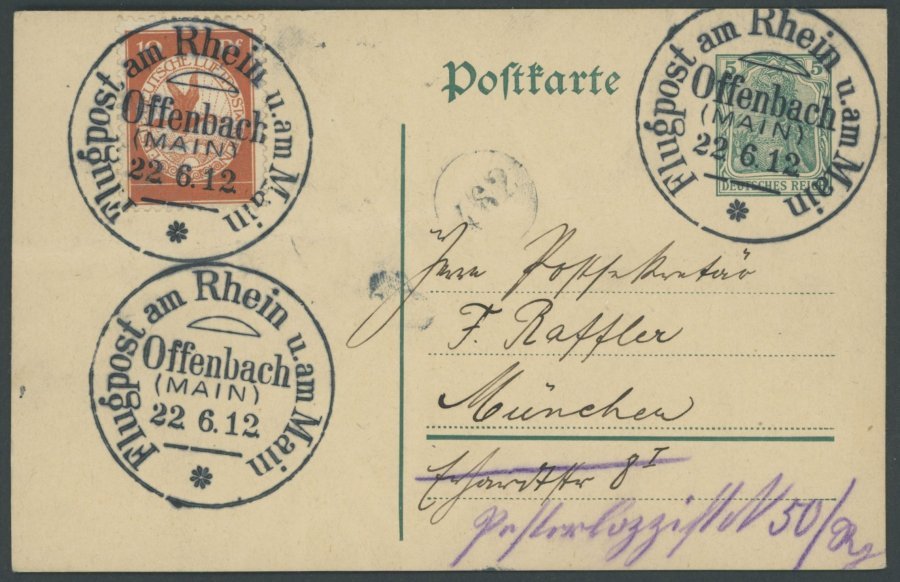 10 Pf
DEUTSCHE LUFTPOST
Flugpost am Rhein u. am Main
Offenbach
(MAIN)
22 6.12
Postkarte
5 5
DEUTSCHES REICH
Flugpost am Rhein u. am Main
Offenbach
(MAIN)
22 6.12
Flugpost am Rhein u. am Main
Offenbach
(MAIN)
22 6.12
Herr Postsekretär
F. Raffler
München
Erhardtstr 8 I
50/